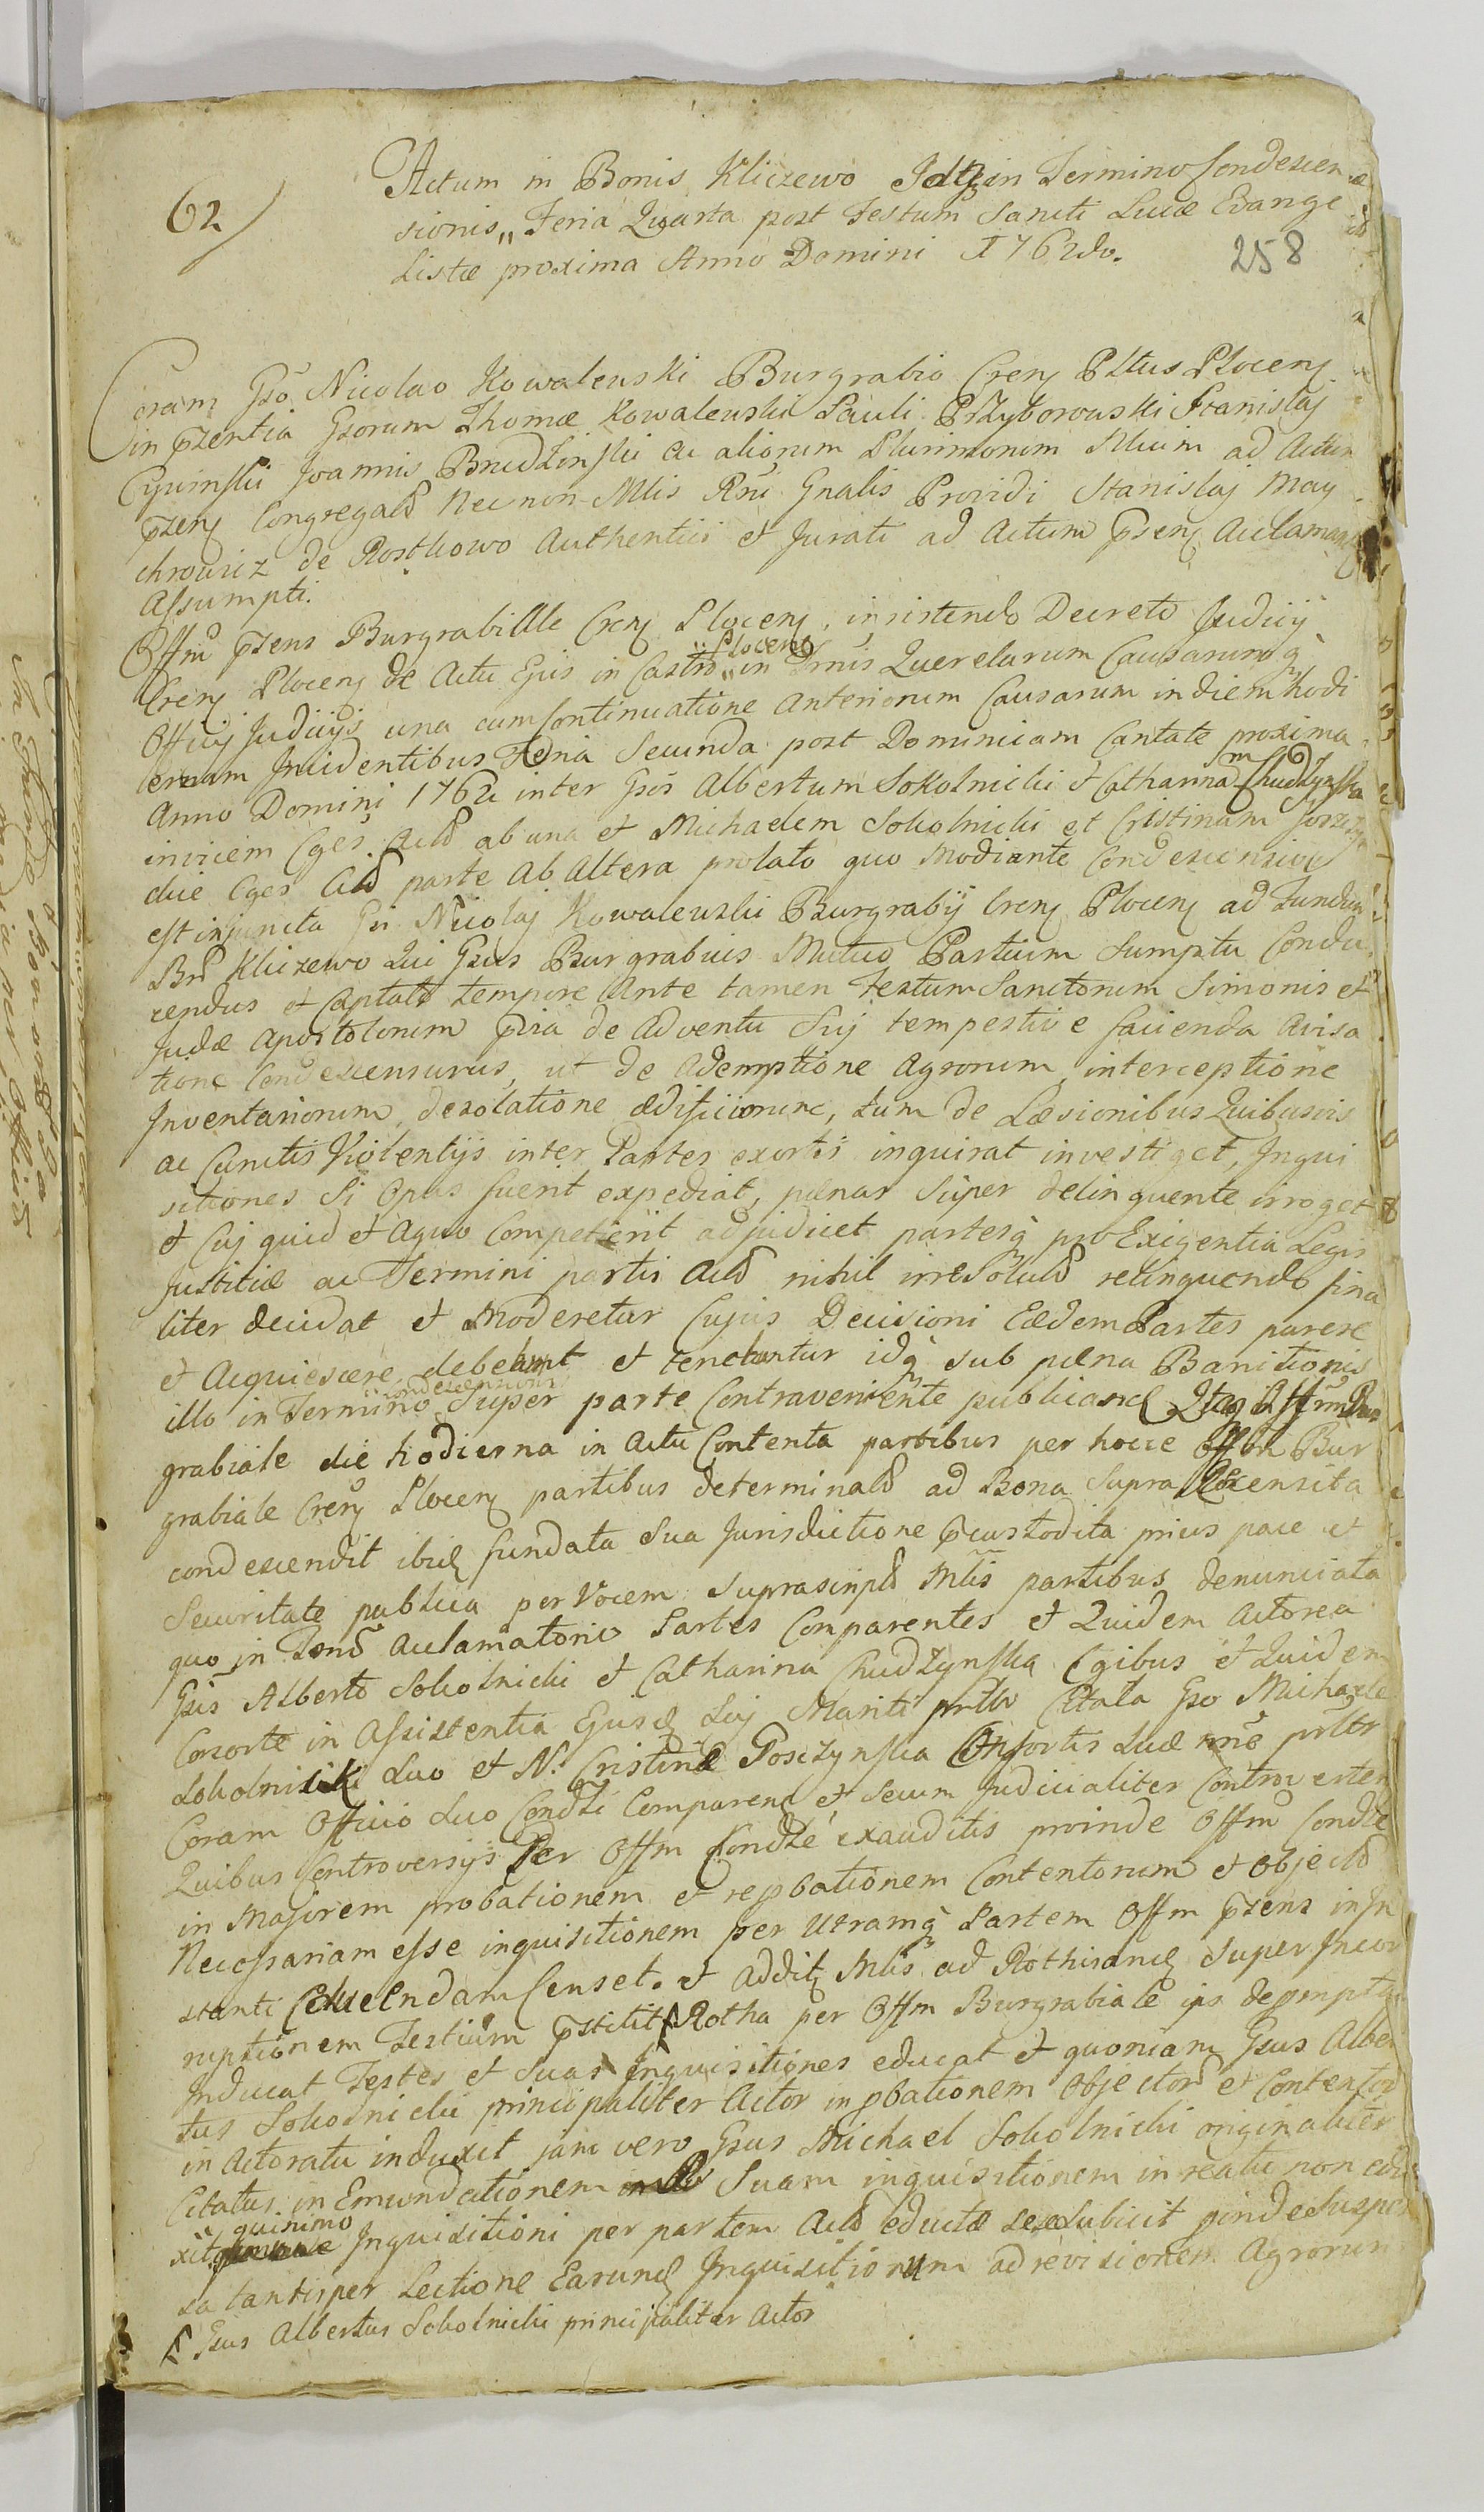 62/
Actum in Bonis Kliczewo Idq in Termino Condescen
sionis,, Feria Quarta post Festum Sancti Lucæ Evange
listæ proxima Anno Domini 1762do.
258
Coram Gso Nicolao Kowalewski Burgrabio Cren Pltus Plocen
in pzentia Gsorum Thomæ Kowalewski Pauli Przyborowski Stanislaj
Cywinski Joannis Brudzinski ac aliorum Plurimorum Mium ad Actum
pzen Congregatd Nec non Mlis Rni Gnalis Providi Stanislaj May
chrowicz de Rostkowo Authentici et Jurati ad Actum pzen Acclamand
Assumpti.
Offm pzens Burgrabiale Cren Plocen, insistendo Decreto Judicij
Cren Plocen de Actu Ejus in Castro Plocen in Tmis Querelarum Causarumq
Officij Judicijs una cum Continuatione Anteriorum Causarum in diem hodi
ernam Incidentibus Feria Secunda post Dominicam Cantate proxima
Anno Domini 1762 inter Gsos Albertum Sokolnicki et Catharinam Chudzynska
invicem Cges Actd ab una et Michaelem Sokolnicki et Cristinam
Cges Citd parte Ab Altera prolato quo Mediante Condescensio
est injuncta Gsi Nicolaj Kowalewski Burgrabij Cren Plocen ad Fundum
Bnd Kliczewo Qui Gsus Burgrabius Mutuo Partium Sumptu Condu
cendus et Captato tempore Ante tamen Festum Sanctorum Simonis et
Judæ Apostolorum pvia de Adventu Suj tempestive facienda Avisa
tione Condescensurus, ut de Ademptione Agrorum, interceptione
Inventariorum, desolatione ædificiorum, tum de Læsionibus Quibusvis
ac Cunctis Violentijs inter Partes exortis inquirat investiget, Inqui
sitiones Si Opus fuerit expediat, pænas Super delinquente irroget
et Cuj quid et Aquo Competierit adjudicet partesq pro Exigentia Legis
Justitiæ ac Termini partis Actd nihil irresolutd relinquendo fina
liter decidat et Moderetur Cujus Decisioni Eædem Partes parere
et Acquiescere debebunt et tenebuntur idq sub pæna Banitionis
illo in Termino condescensionis Super parte Contraveniente publicand Itaq Offm Bur
grabiale die hodierna in Actu Contenta partibus per hocce Offm Bur
grabiale Cren Plocen partibus determinatd ad Bona Supra Recensita
condescendit ibiq fundata Sua Jurisdictione pcustodita prius pace et
Securitate publica per Vocem Suprascriptd Mlis partibus denunciata
quo in Acclamatorio Partes Comparentes et Quidem Actorea
Gsis Alberto Sokolnicki et Catharina Chudzynska Cgibus et Quidem
Consorte in Assistentia Ejusd Suj Mariti prltr Citata Gso Michaele
Sokolnicki Suo et N. Cristinæ Consortis Suæ nne prltr
Coram Officio Suo Condzi Comparend et Secum Judicialiter Controverten
Quibus Controversijs Per Offm Condze exauditis proinde Offm Condze
in Majorem probationem et repbationem Contentorum et Objectd
Necessariam esse inquisitionem per Utramq Partem Offm pzens in In
stanti Censet. et Addit Mlis ad Rothisand Super Incor
ruptionem Testium pstitit Rotha per Offm Burgrabiale ips deprompta
Inducat Testes et Suas Inquisitiones educat et quoniam Gsus Alber
tus Sokolnicki principaliter Actor in pbationem Objectord et Contentord
in Actoratu induxit jam vero Gsus Michael Sokolnicki originaliter
Citatus in Emundationem Suam inquisitionem in reatu non edu
xit quinimo Inquisitioni per partem Actd eductæ sese Subjicit pinde Suspen
sa tantisper Lectione Earund Inquisitionum ad revisionem Agrorum
Gsus Albertus Sokolnicki principaliter Actor